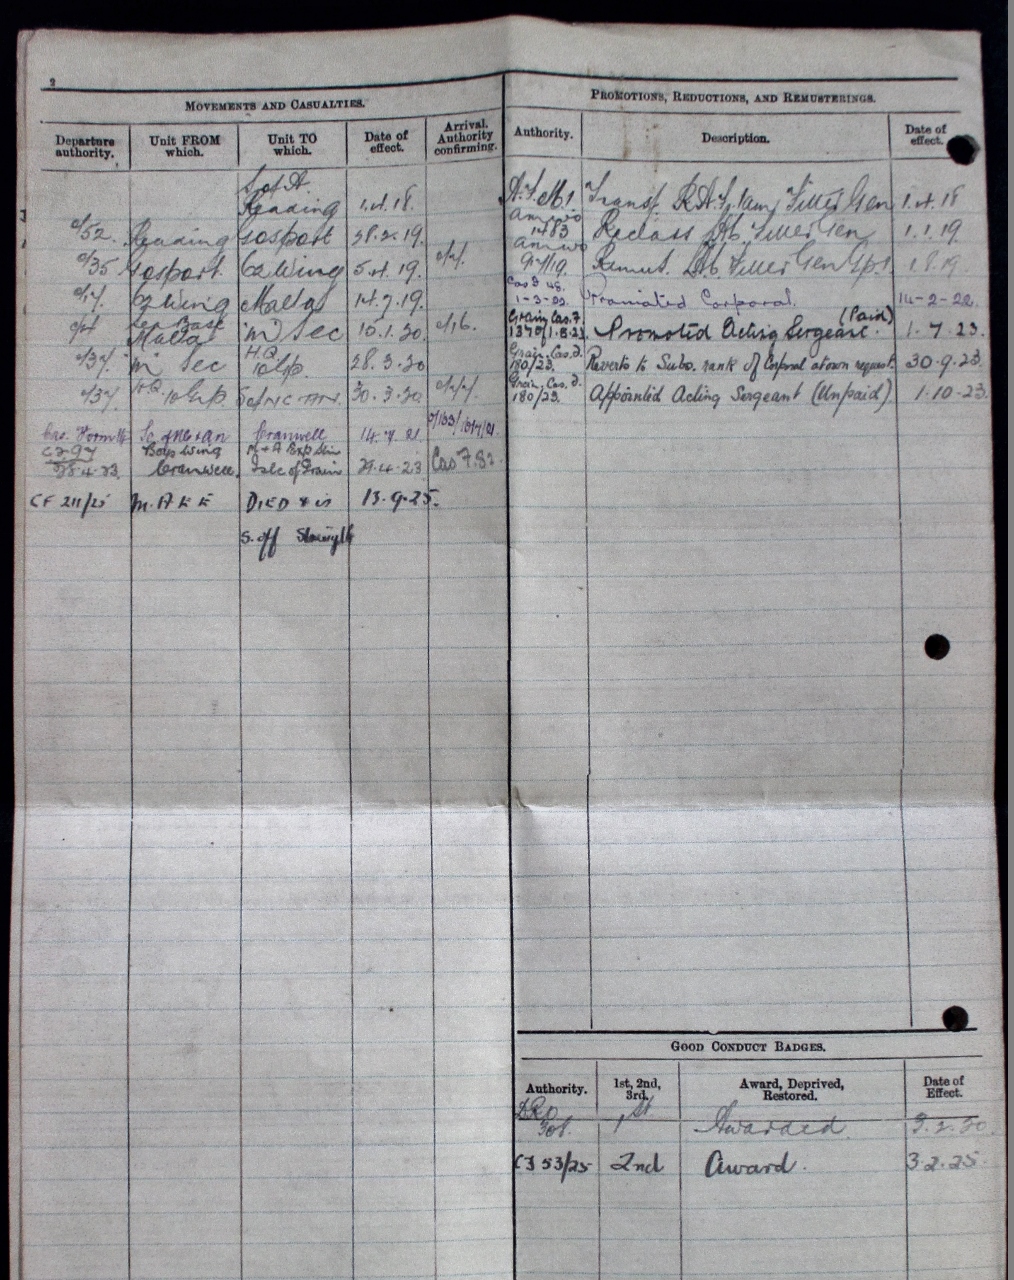 2
MOVEMENTS AND CASUALTIES.
Departure authority.
Unit FROM which.
Unit TO which.
Date of effect.
Arrival. Authority confirming.
S of A.
Reading 1.4.18.
c/52. Reading Gosport 28.2.19.
c/35 Gosport. 62 Wing 5.4.19.
62 Wing Malta 14.7.19.
Malta Sec 10.1.20. c/16.
c/37. Sec H.Q. 10 Gp. 28.3.20
c/37 H.Q. 10 Grp 30.3.20
Cranwell 14.7.21.
C2 97 Boys Wing M & A Exp
28.4.23. Cranwell. Isle of Grain 29.4.23 Cas 7.83.
CF 211/25 M.A E E DIED & is 13.9.25.
S. off Strength
PROMOTIONS, REDUCTIONS, AND REMUSTERINGS.
Authority.
Description.
Date of effect.
Transf. R.A.F. Fitter Gen 1.4.18
1483 Reclass Fitter Gen 1.1.19
Remust. Fitter Gen 1.8.19
1-3-22. Promoted Corporal. 14-2-22.
Grain, Cas. 7. (Paid)
Promoted Acting Sergeant. 1.7.23.
Grain, Cas. 2.
180/23. Reverts to Subs. rank of Corporal at own request. 30.9.23.
Grain, Cas. 2.
180/23. Appointed Acting Sergeant (Unpaid) 1.10.23.
GOOD CONDUCT BADGES.
Authority.
1st, 2nd, 3rd.
Award, Deprived, Restored.
Date of Effect.
1st Awarded 3.2.20.
53/25 2nd Award. 3.2.25.